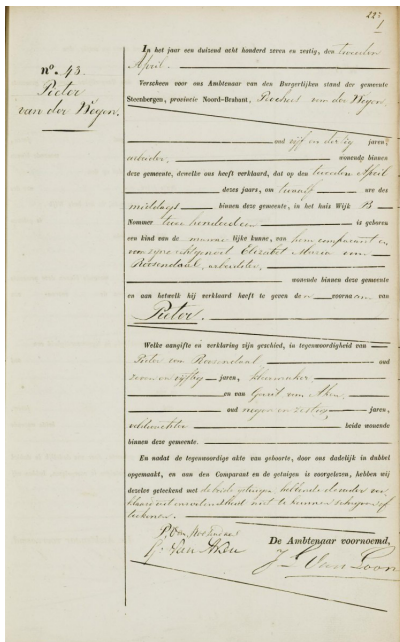 223
1
nº. 43.
Pieter
van der Wegen.
In het jaar een duizend acht honderd zeven en zestig, den tweeden
April.
Verscheen voor ons Ambtenaar van den Burgerlijken stand der gemeente
Steenbergen, provincie Noord-Brabant, van der Wegen
oud vijf en dertig jaren,
arbeider, wonende binnen
deze gemeente, dewelke ons heeft verklaard, dat op den tweeden April
dezes jaars, om twaalf ure des
middags binnen deze gemeente, in het huis Wijk B
Nommer twee honderd is geboren
een kind van de mannelijke kunne, van hem comparant en
van zijne echtgenoot Elizabet Maria van
Roosendaal, arbeidster,
wonende binnen deze gemeente
en aan hetwelk hij verklaard heeft te geven den voornaam van
Pieter.
Welke aangifte en verklaring zijn geschied, in tegenwoordigheid van
Pieter van Roosendaal oud
zeven en vijftig jaren, kleermaker
en van Gerrit van Aken
oud negen en zestig jaren,
veldwachter beide wonende
binnen deze gemeente.
En nadat de tegenwoordige akte van geboorte, door ons dadelijk in dubbel
opgemaakt, en aan den Comparant en de getuigen is voorgelezen, hebben wij
dezelve geteekend met de beide getuigen, hebbende de vader ver
klaard uit onervarendheid niet te kunnen schrijven of
teekenen.
P. van Roosendaal
G. van Aken
De Ambtenaar voornoemd,
J L Van Loon